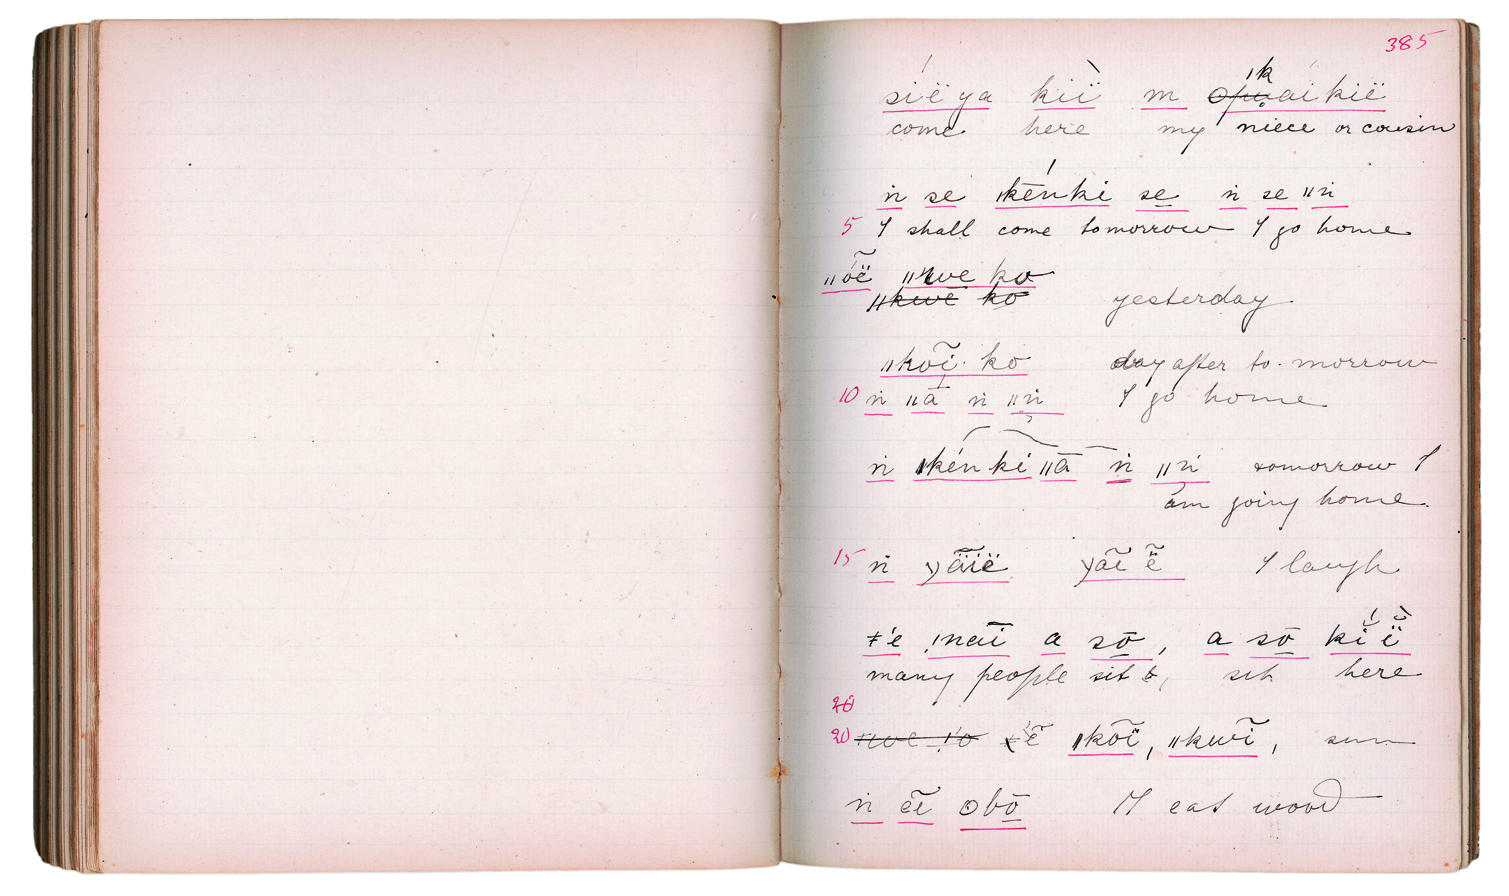 385
síë ya kiï̀ m ǀkáikië
come here my niece or cousin
ṅ se ǀkénki se ṅ se ǁṅ
5 I shall come tomorrow I go home
ǁóë̃ ǁkwe ko
ǁkwe ko yesterday
ǁkoĩ ko day after to-morrow
10 ṅ ǁā ṅ ǁṅ I go home
ṅ ǀkénki ǁā ṅ ǁṅ tomorrow I
am going home
15 ṅ yãïë yãĩ ẽ I laugh
ǂé ǃnaī a sō, a sō kíï̀
many people sit, sit here
20
20 ǁkõï, ǁkwĩ, sun
ṅ ẽĩ ʘbō I eat wood